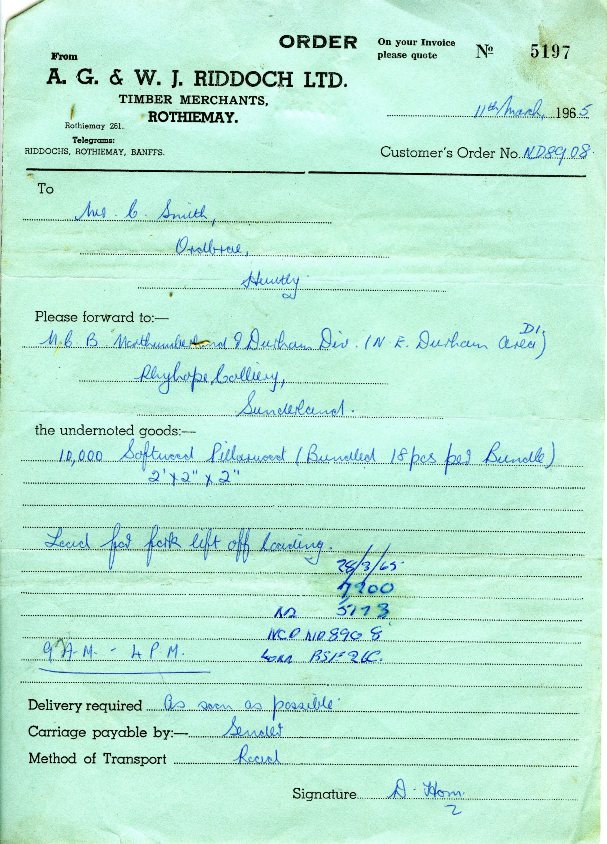 ORDER On your Invoice please quote Nº 5197
From
A. G. & W. J. RIDDOCH LTD.
TIMBER MERCHANTS,
ROTHIEMAY.
11th March, 1965
Rothiemay 261.
Telegrams:
RIDDOCHS, ROTHIEMAY, BANFFS.
Customer's Order No. ND8908
To
C. Smith,
Ordbrae,
Huntly
Please forward to:—
N.C.B. Northumberland & Durham Div. (N.E. Durham Area) D1.
Ryhope Colliery,
Sunderland.
the undernoted goods:—
10,000 Softwood Pillarwood (Bundled 18 pcs per Bundle)
2' x 2" x 2"
Load for fork lift off loading.
28/3/65
7200
5173
ND8908
9 A.M. - 4 P.M.
Delivery required As soon as possible
Carriage payable by:— Sender
Method of Transport Road
Signature D. Horn